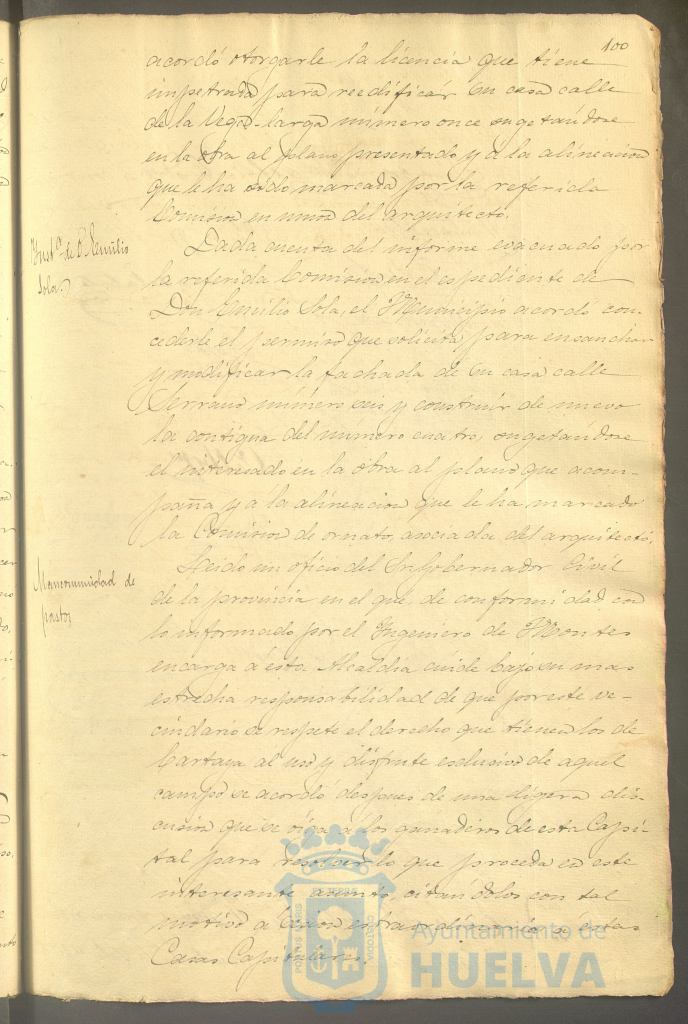 100
acordó otorgarle la licencia que tiene
impetrada para reedificar su casa calle
de la Vega-larga número once sugetándose
en la obra al plano presentado y a la alineacion
que le ha sido marcada por la referida
Comision en union del arquitecto.
Inst.ª de D. Emilio
Sola.
Dada cuenta del informe evacuado por
la referida Comision en el espediente de
Don Emilio Sola, el Municipio acordó con-
cederle el permiso que solicita para ensanchar
y modificar la fachada de su casa calle
Serrano número seis y construir de nuevo
la contigua del número cuatro, sugetándose
el interesado en la obra al plano que acom-
paña y a la alineacion que le ha marcado
la Comision de ornato, asociada del arquitecto.
Mancomunidad de
pastos
Leido un oficio del Sr. Gobernador Civil
de la provincia en el que, de conformidad con
lo informado por el Ingeniero de Montes
encarga á esta Alcaldia cuide bajo su mas
estrecha responsabilidad de que por este ve-
cindario se respete el derecho que tienen los de
Cartaya al uso y disfrute esclusivo de aquel
campo se acordó despues de una ligera dis-
cusion que se oiga á los ganaderos de esta Capi-
tal para resolver lo que proceda en este
interesante asunto, citándolos con tal
motivo á sesion estraordinaria á estas
Casas Capitulares.
Ayuntamiento de
HUELVA